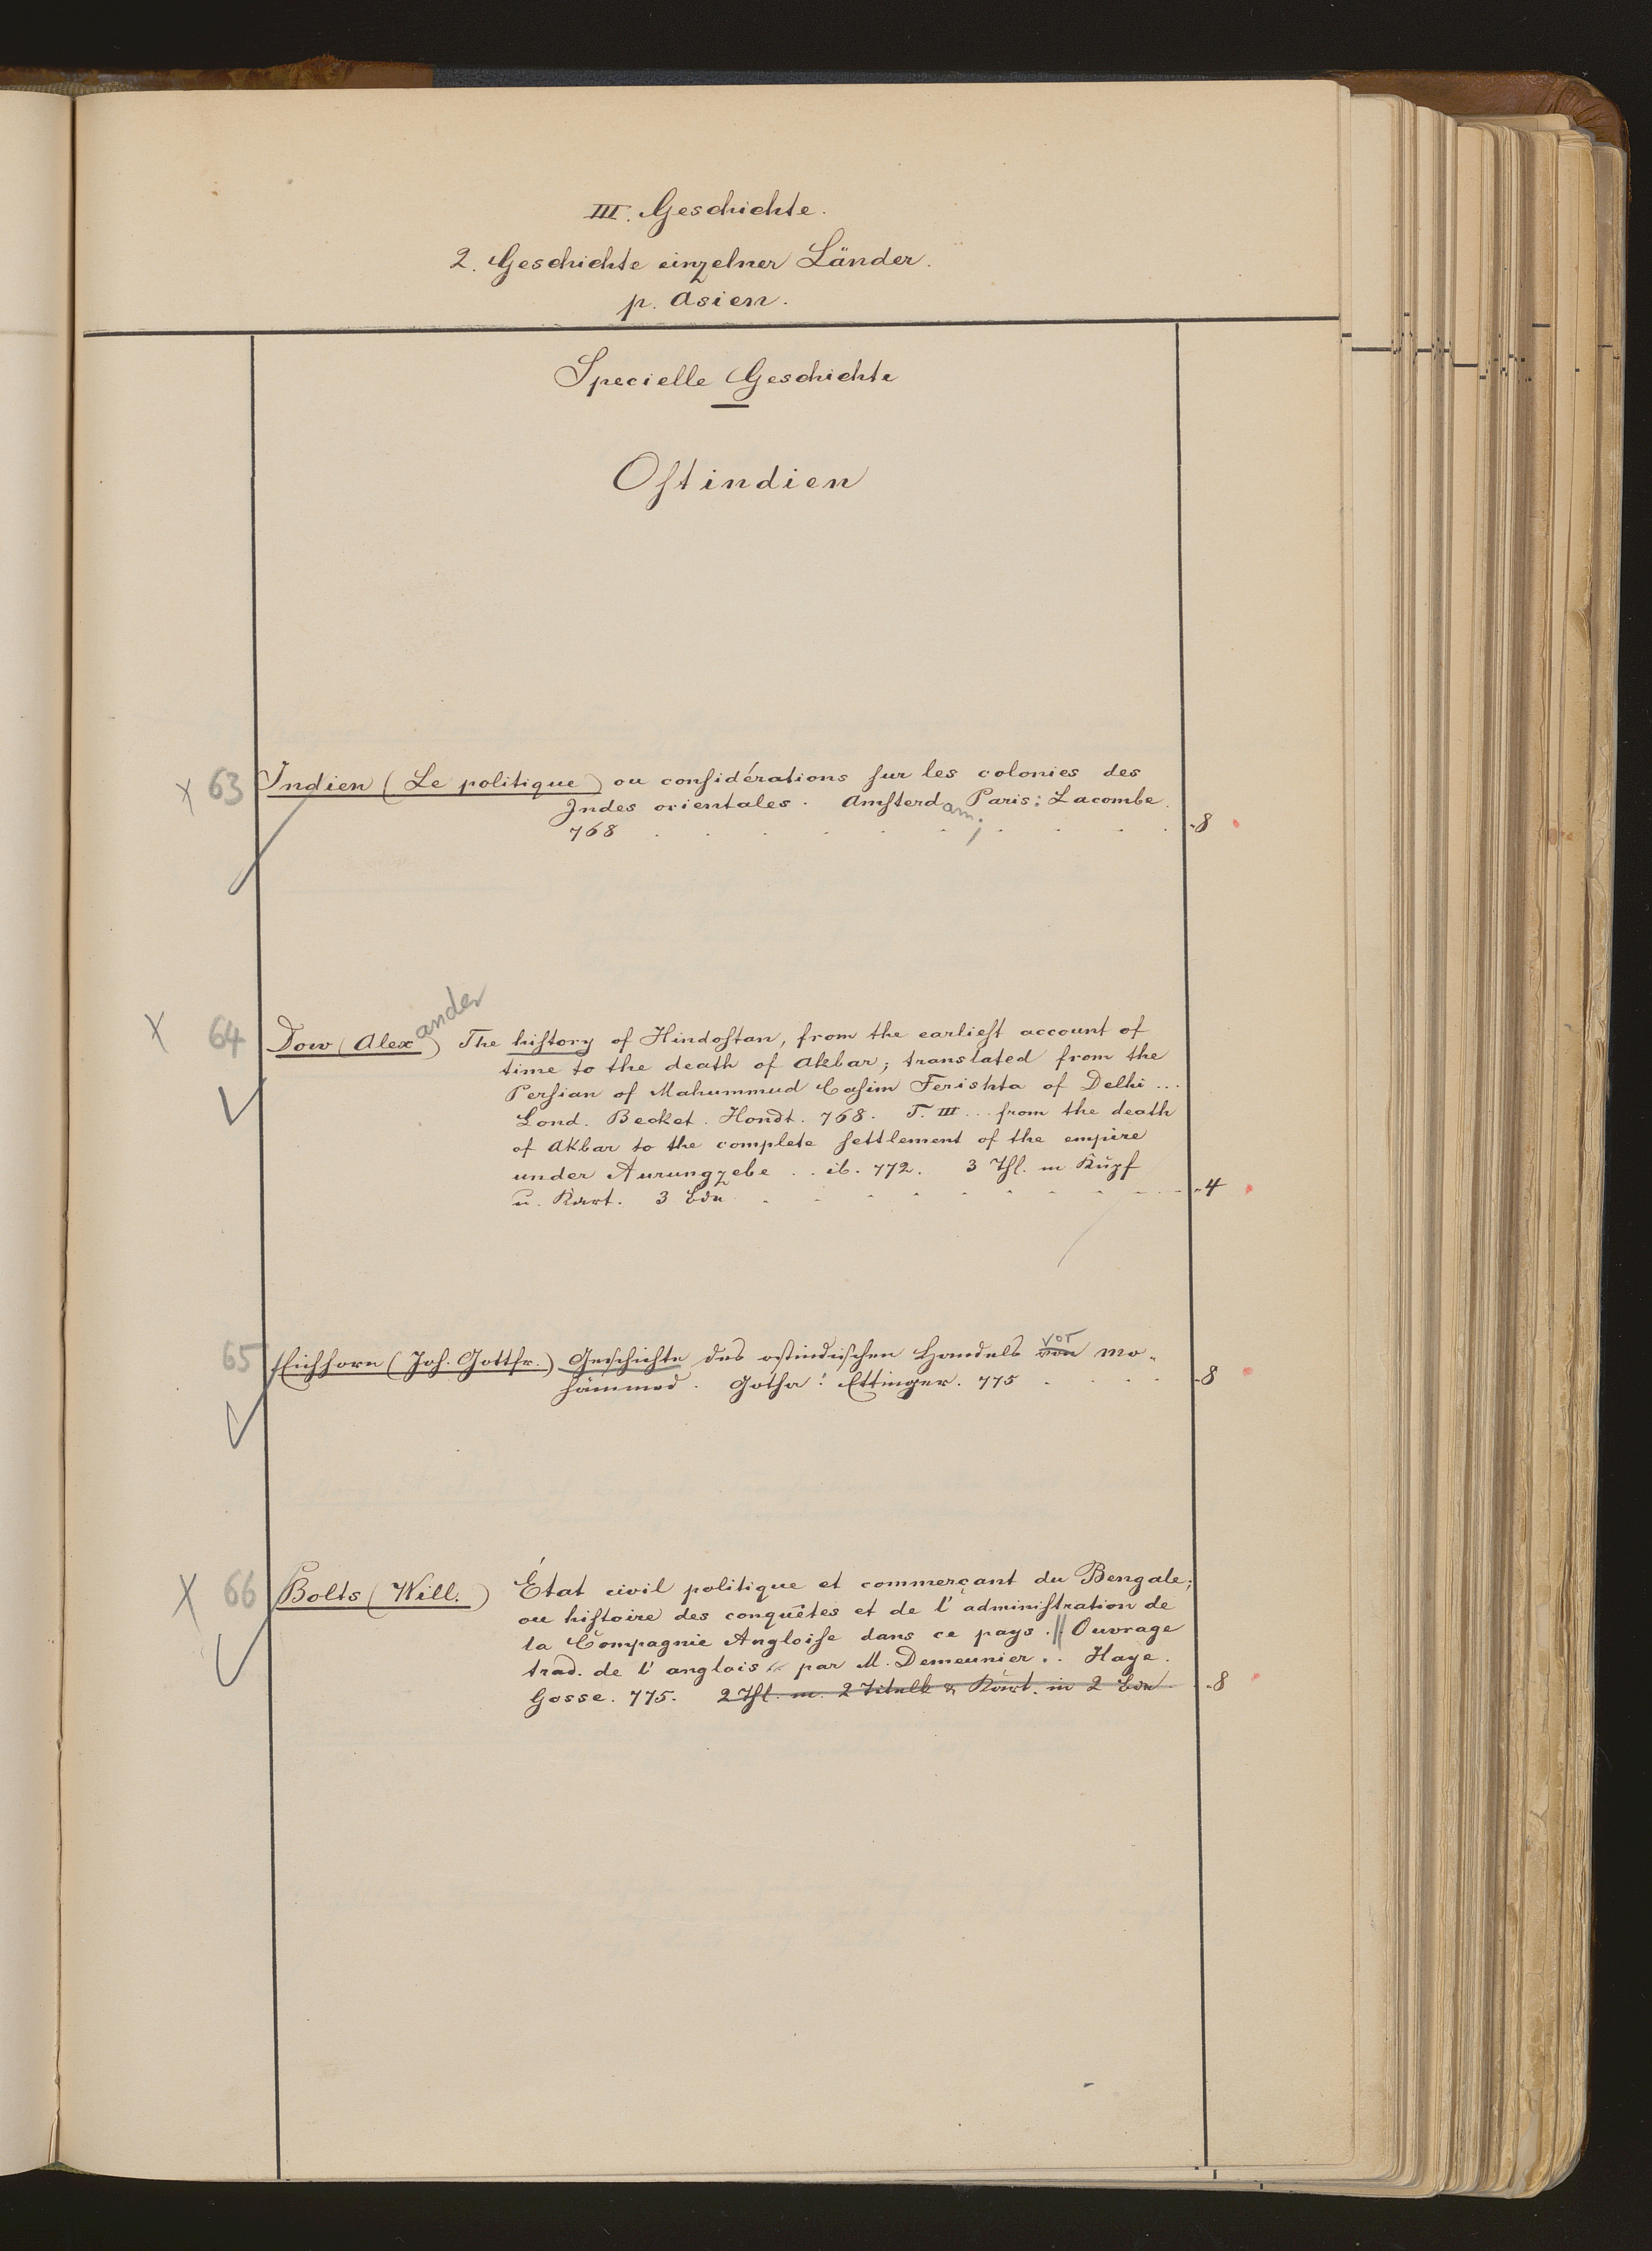 III. Geschichte.
2. Geschichte einzelner Länder.
p. Asien.
Specielle Geschichte
Ostindien
x 63 Indien (Le politique) ou considérations sur les colonies des
Indes orientales. Amsterdam; Paris: Lacombe.
768 . . . . . . . . . . -8
x 64 Dow (Alexander) The history of Hindostan, from the earliest account of
time to the death of Akbar; translated from the
Persian of Mahummud Casim Ferishta of Delhi ...
Lond. Becket. Hondt. 768. T. III... from the death
of Akbar to the complete settlement of the empire
under Aurungzebe .. ib. 772. 3 Thl. m Kupf
u. Kart. 3 Bdn . . . . . . . . . -4
65 Eichhorn (Joh. Gottfr.) Geschichte des ostindischen Handels von vor Mo-
hämmed. Gotha: Ettinger. 775 . . . . -8
x 66 Bolts (Will.) État civil politique et commerçant du Bengale;
ou histoire des conquêtes et de l'administration de
la Compagnie Angloise dans ce pays. || Ouvrage
trad. de l'anglois par M. Demeunier .. Haye.
Gosse. 775. 2 Thl. m. 2 Titelk & Kart. in 2 Bdn . -8